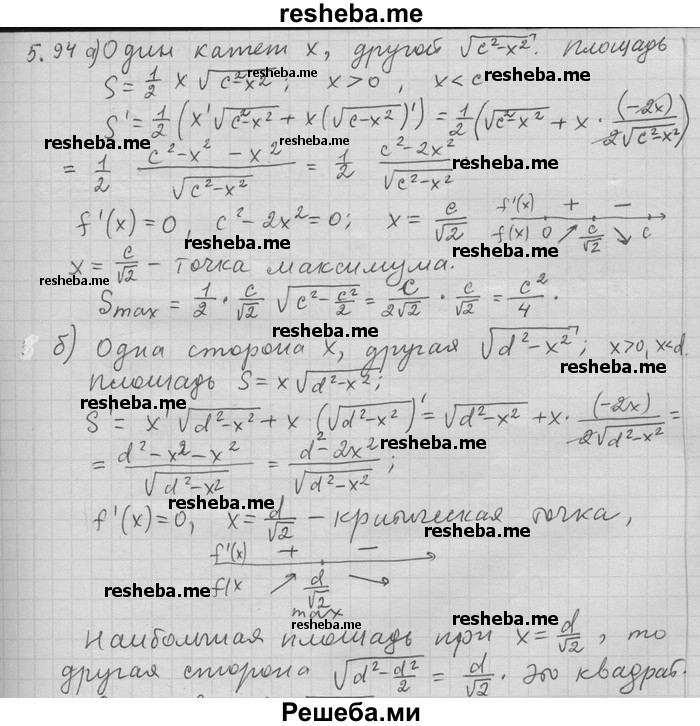 resheba.me
5.94 а) Один катет x, другой √(c²-x²). площадь
S = 1/2 x √(c²-x²); x>0, x<c
S' = 1/2 (x'√(c²-x²) + x(√(c-x²))') = 1/2 (√(c²-x²) + x · (-2x)/(2√(c²-x²)))
= 1/2 (c²-x²-x²)/√(c²-x²) = 1/2 (c²-2x²)/√(c²-x²)
f'(x)=0, c²-2x²=0; x = c/√2 f'(x) + -
f(x) 0 ↗ c/√2 ↘ c
x = c/√2 - точка максимума.
Smax = 1/2 · c/√2 √(c²-c²/2) = c/(2√2) · c/√2 = c²/4.
б) Одна сторона x, другая √(d²-x²); x>0, x<d.
площадь S = x√(d²-x²);
S' = x'√(d²-x²) + x · (√(d²-x²))' = √(d²-x²) + x · (-2x)/(2√(d²-x²)) =
= (d²-x²-x²)/√(d²-x²) = (d²-2x²)/√(d²-x²);
f'(x)=0, x = d/√2 - критическая точка,
f'(x) + -
f(x ↗ d/√2 ↘
max
Наибольшая площадь при x = d/√2, то
другая сторона √(d²-d²/2) = d/√2. Это квадрат.
resheba.me
resheba.me
resheba.me
resheba.me
resheba.me
resheba.me
resheba.me
resheba.me
resheba.me
resheba.me
resheba.me
resheba.me
resheba.me
resheba.me
Решеба.ми